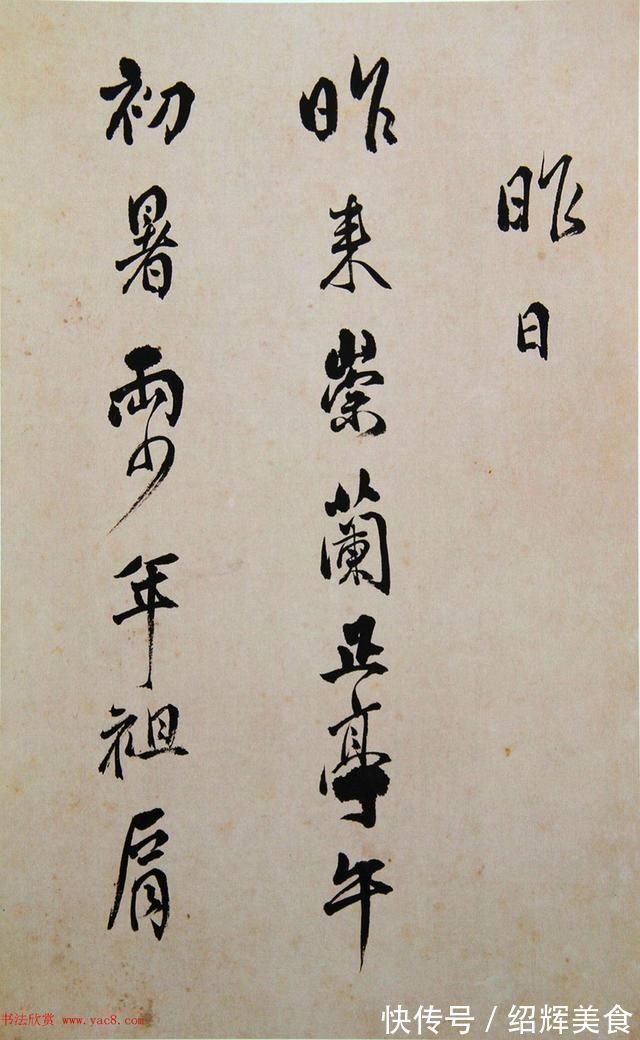 昨日
昨来崇蘭正亭午
初暑兩少年祖肩
书法欣赏 www.yac8.com
快传号 / 绍辉美食